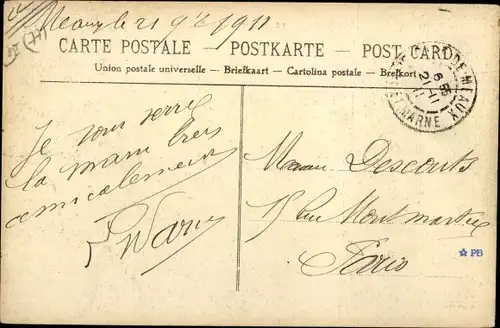 Meaux le 21 9bre 1911
CARTE POSTALE — POSTKARTE — POST CARD
Union postale universelle — Briefkaart — Cartolina postale — Brefkort
MEAUX
6 55
21-11
11
ET MARNE
Je vous serre
la main bien
amicalement
Mr Descouts
15 Rue Montmartre
Paris
PB